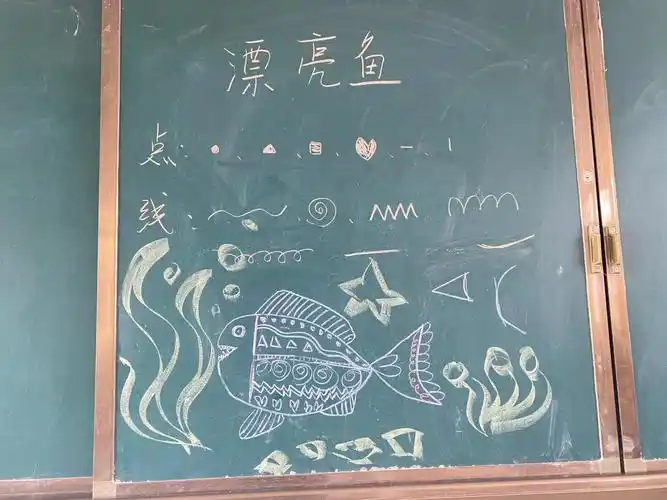 漂亮鱼
点:
线: